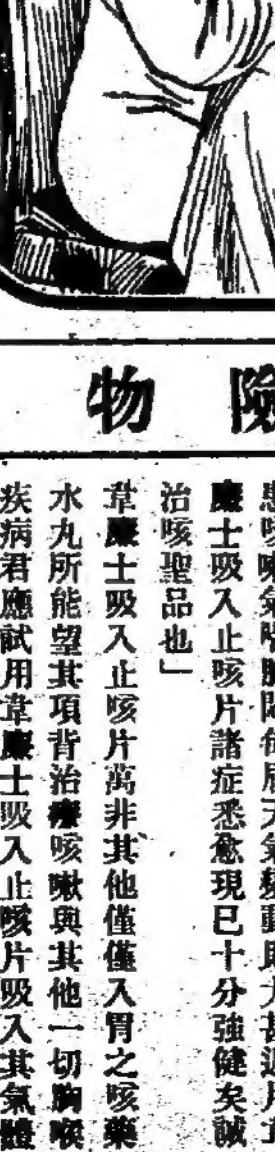 險物
患咳嗽氣喘胸悶每屆天氣
廉士吸入止咳片諸症悉愈現已十分強健矣誠
治咳聖品也」
韋廉士吸入止咳片萬非其他僅僅入胃之咳藥
水丸所能望其項背治療咳嗽與其他一切胸喉
疾病君應試用韋廉士吸入止咳片吸入其氣體